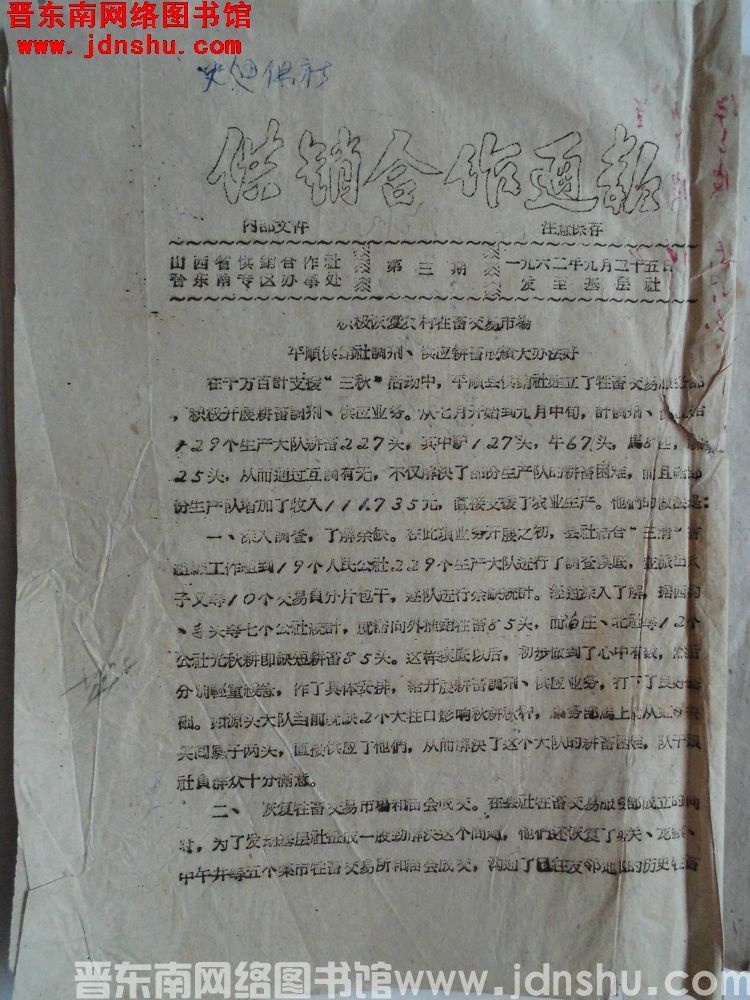 晋东南网络图书馆
www.jdnshu.com
供销合作通报
内部文件 注意保存
山西省供銷合作社 第三期 一九六二年九月二十五日
晉东南专区办事处 发至基层社
积极恢复农村牲畜交易市場
平順供銷社調剂、供应耕畜成績大办法好
在千方百計支援“三秋”活动中，平順县供銷社建立了牲畜交易服务部
，积极开展耕畜調剂、供应业务。从七月开始到九月中旬，計調剂、供
129个生产大队耕畜227头，其中驴127头，牛67头，馬8匹，
25头，从而通过互調有无，不仅解决了部份生产队的耕畜困难，而且
份生产队增加了收入111,735元，直接支援了农业生产。他們的做法是：
一、深入調查，了解余缺。在此項业务开展之初，县社結合“三清”
工作組到19个人民公社229个生产大队进行了調查摸底，並派出
子义等10个交易員分片包干，逐队进行余缺統計。经过深入了解，
头等七个公社統計，就需向外推銷牲畜85头，而 庄、北社等12个
公社光秋耕即缺短耕畜85头。这样摸底以后，初步做到了心中有数，然后
分別輕重緩急，作了具体安排，給开展耕畜調剂、供应业务，打下了良好
础。如源头大队当前就缺2个大牲口影响秋耕秋种，服务部馬上就从
买回騾子两头，直接供应了他們，从而解决了这个大队的耕畜困难，队干
社員群众十分滿意。
二、恢复牲畜交易市場和庙会成交。在县社牲畜交易服务部成立的同
时，为了发动基层社 成一股劲解决这个問題，他們还恢复了 关、龙
中午井等五个集市牲畜交易所和庙会成交，沟通了已往友邻地区的历史牲畜
晋东南网络图书馆www.jdnshu.com